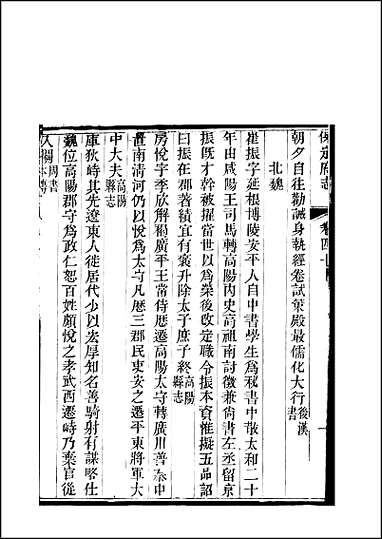 保定府志 卷四
朝夕自往勸誡身執經卷試策殿最儒化大行後漢書
北魏
崔振字延根博陵安平人自中書學生爲秘書中散太和二十
年由咸陽王司馬轉高陽內史高祖南討徵兼尚書左丞留京
振旣才幹被擢當世以爲榮後改定職令振本資惟擬五品詔
曰振在郡著績宜有褒升除太子庶子終高陽縣志
房悅字季欣解褐廣平王常侍歷遷高陽太守轉廣川普泰中
置南清河仍以悅爲太守凡歷三郡民吏安之遷平東將軍大
中大夫高陽縣志
庫狄峙其先遼東人徙居代少以宏厚知名善騎射有謀略仕
魏位高陽郡守爲政仁恕百姓頗悅之孝武西遷峙乃棄官從
入關周書本傳